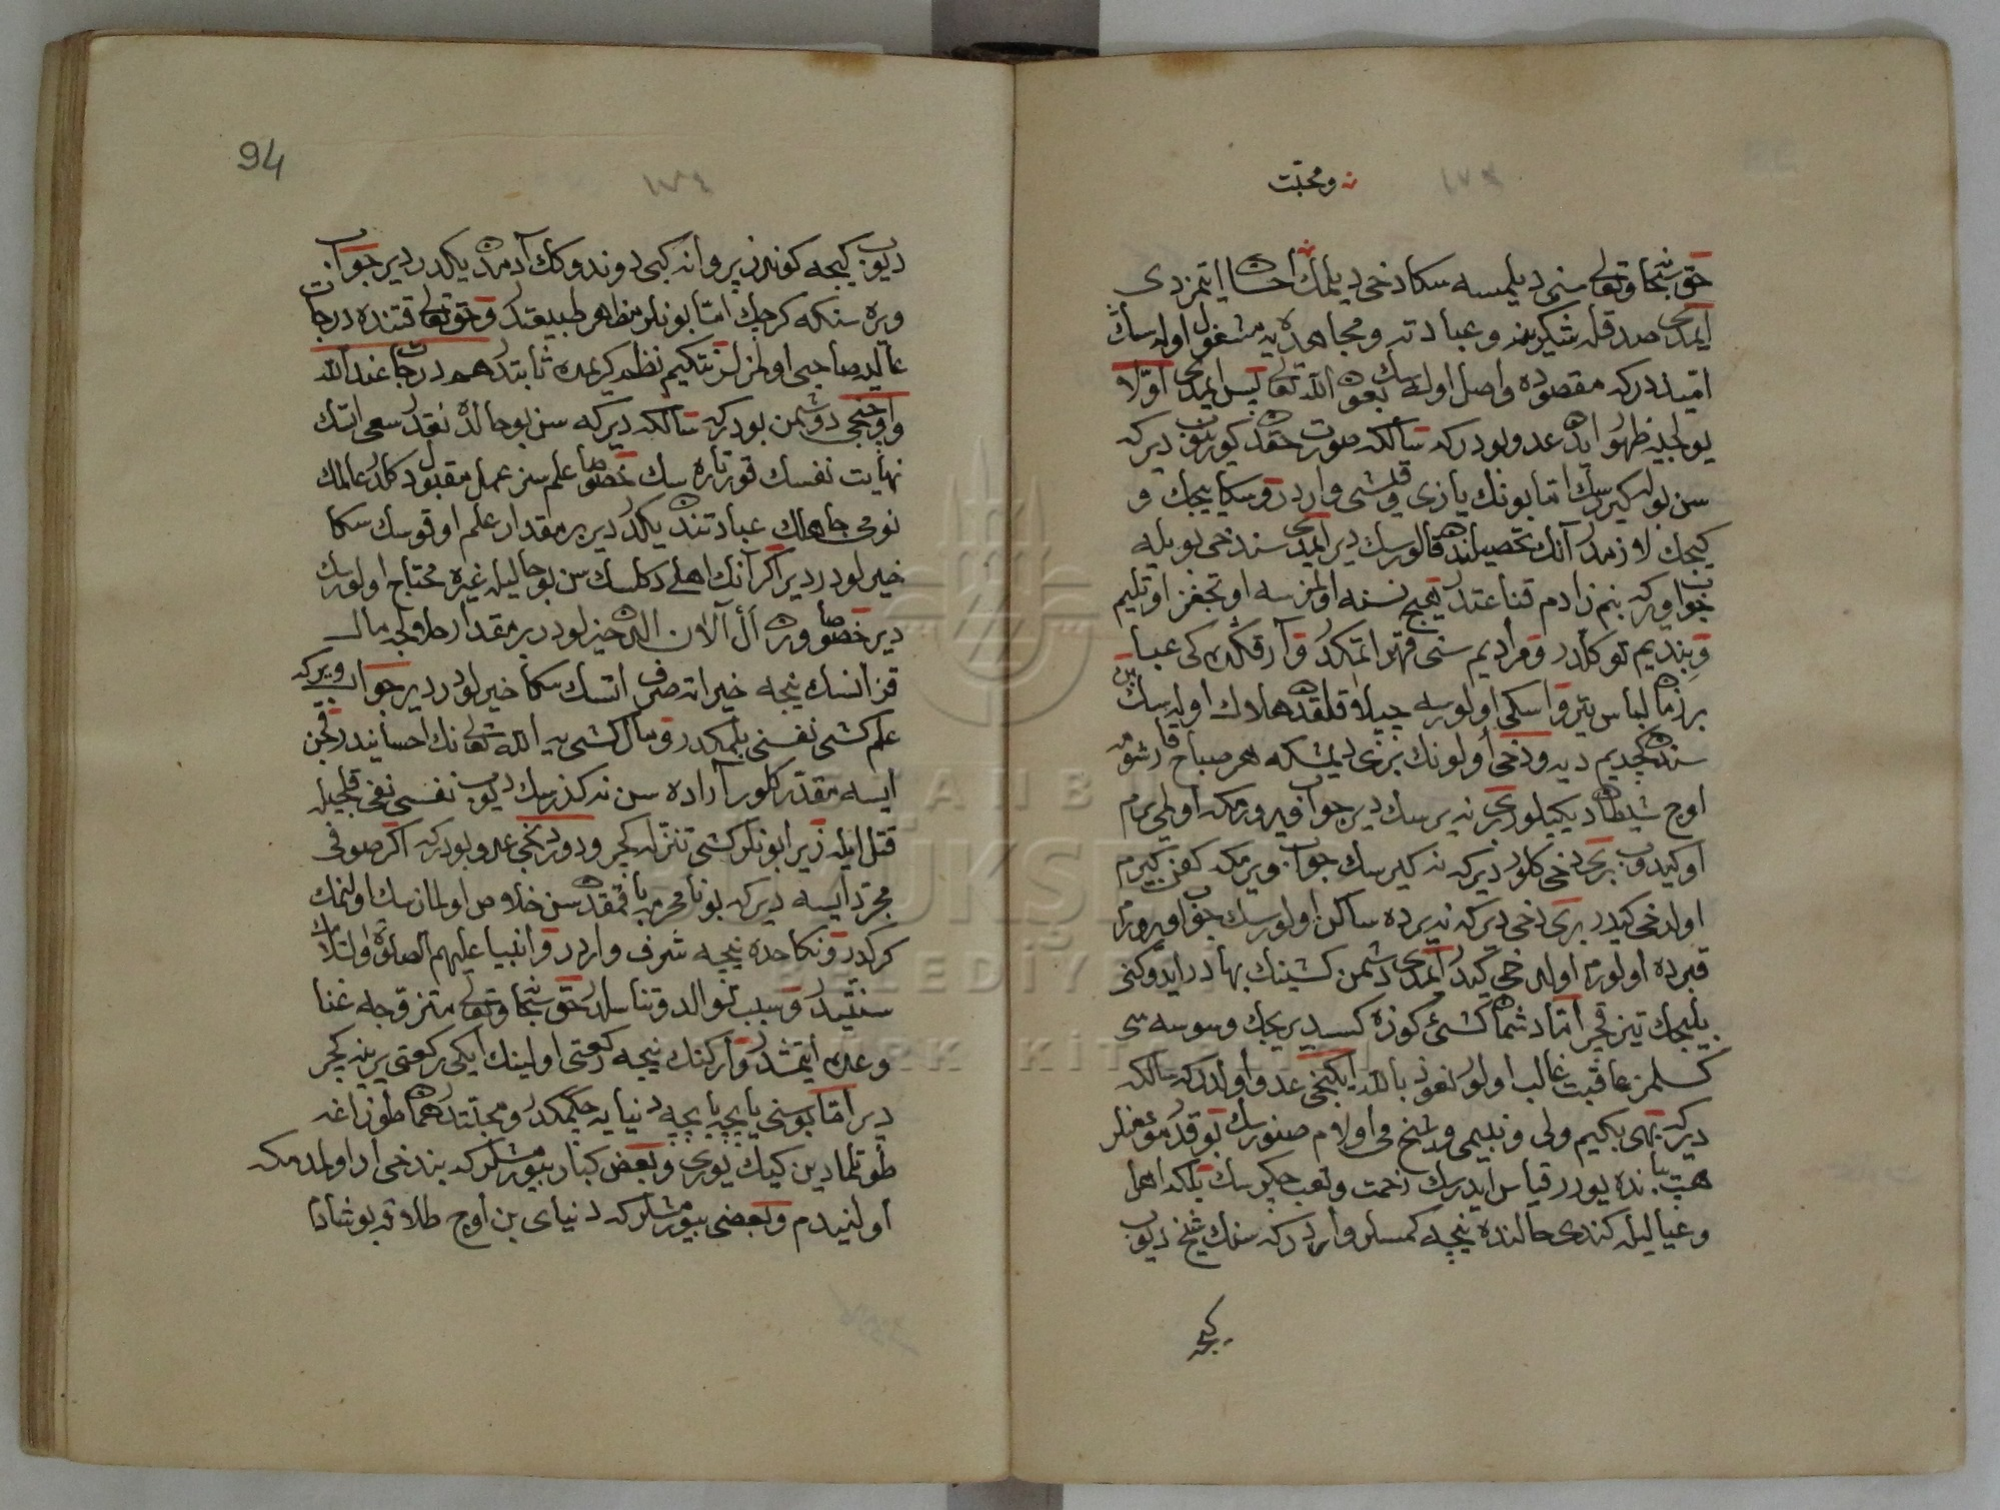 ١٧٣
ن ومحبّت
حق سبحانه وتعالى سنى ديلمسه سكا دخى ديلمك احسان ايتمزدى
ايمدى صدقله شكر و عبادته ومجاهده يه مشغول اوله سك
اميددركه مقصوده واصل اوله سك بعون الله تعالى پس ايمدى اوّلا
يولجيه ظهور ايدن عدو بودركه سالكه صورت حقدن كورينوب ديركه
سن بو يوله كيررسك امّا بونك يازى وقيشى واردر و سكا ييجك و
كيجك لازمدر آنك تحصيلنده قالورسك دير ايمدى سن دخى بويله
جواب ويركه بنم زادم قناعتدر هيچ نسنه اولمزسه اوتجغز اوتليم
وبنديم توكلدر ومراديم سنى قهر ايتمكدر و آرقمكده كى عبا
بر زمان لباس يتر و اسكى اولورسه چپلاق قلقده هلاك اوله سك بن
سندن كچديم ديه ودخى اولونك برى ديمشكه هر صباح قارشومه
اوچ شيطان ديكيلور برى نه يرسك دير جواب ويررمكه اولمى يرم
اوكيدوب برى دخى كلور ديركه نه كيرسك جواب ويررمكه كفن كيرم
اولدخى كيدر برى دخى ديركه نه يرده ساكن اولورسك جواب ويررم
قبرده اولورم اولدخى كيدر ايمدى دشمن كشينك بهادر ايدوكنى
بيليجك تيز قچر امّا دشمان كشئ كوزه كسديريجك وسوسه سى
كسلمز عاقبت غالب اولور نعوذ بالله ايكنجى عدو اولدركه سالكه
ديركه بهى بكيم ولى ونبيمى وشيخمى اولام صنورسك بوقدر مؤمنلر
هپ يبانده يورر قياس ايدرسك زحمت وتعب چكرسك بلكه اهل
وعياليله كندى حالنده نيجه كمسلر واردركه سنك شيخ ديوب
كيجه
94
١٧٤
ديوب كيجه كوندز پروانه كبى دوندوكك آدمدن يكدر دير جواب
ويره سنكه كرچك امّا بونلر مظاهر طبيعتدر وحق تعالى قتنده درجات
عاليه صاحبى اولمزلر نتكيم نظم كريمده ثابتدر هم درجات عند الله
واوچنجى دوشمن بودركه سالكه ديركه سن بو حالده نقدر سعى اتسك
نهايت نفسك قورتاره سك خصوصا علمسز عمل مقبول دكلدر عالمك
نومى جاهلك عبادتندن يكدر دير بر مقدار علم اوقوسك سكا
خيرلودر دير اكر آنك اهلى دكلسك سن بو حاليله غيره محتاج اولورسك
دير خصوصا ويره ال آلان الدن خيرلودر بر مقدار حلالجه مال
قزانسك نيجه خيراته صرف اتسك سكا خيرلودر دير جواب ويركه
علم كشى نفسنى بلمكدر و مال كشى يه الله تعالى نك احسانيدر قچن
ايسه مقدّر كلور آراده سن نه كذرسك ديوب نفسى نفى قلجيله
قتل ايله زيرا بونلر كشى تنزله كچر ودوردنجى عدو بودركه اكر صوفى
مجرّد ايسه ديركه بو نامحرمه باقمقدن سن خلاص اولمازسك اولنمك
كركدر ونكاحده نيجه شرف واردر وانبيا عليهم الصلوة والسلام
سنتيدر وسبب توالد وتناسلدر حق سبحانه وتعالى متزوّجه غنا
وعده ايتمشدر وارككك نيجه ركعتى اولينك ايكى ركعتى يرينه كچر
دير امّا بوسنى ياپچه ياپچه دنيايه چكمكدر ومحبّتندر هماندم طوزاغه
طوتلمادين كيك يورى وبعض كبار بيورمشلركه بن دخى ار اولمدمكه
اولنيدم وبعضى بيورمشلركه دنياى بن اوچ طلاق بوشادم